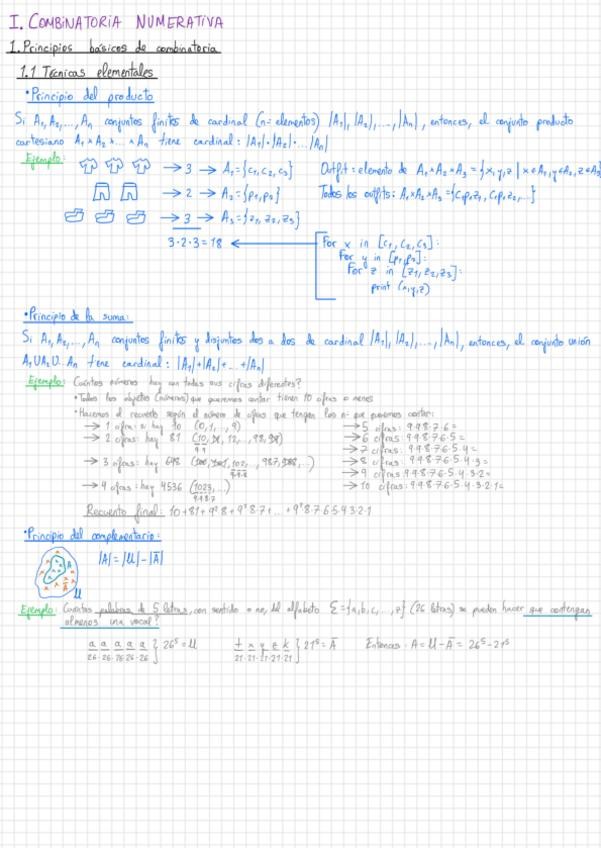 I. COMBINATORIA NUMERATIVA
1. Principios básicos de combinatoria
1.1 Técnicas elementales
• Principio del producto
Si A₁, A₂, ..., Aₙ conjuntos finitos de cardinal (nº elementos) |A₁|, |A₂|, ..., |Aₙ|, entonces, el conjunto producto
cartesiano A₁ × A₂ × ... × Aₙ tiene cardinal: |A₁|·|A₂|· ... |Aₙ|
Ejemplo:
→ 3 → A₁={c₁, c₂, c₃} Outfit: elemento de A₁×A₂×A₃ = {x,y,z | x∈A₁, y∈A₂, z∈A₃
→ 2 → A₂={p₁,p₂} Todos los outfits: A₁×A₂×A₃ = {c₁p₁z₁, c₁p₁z₂, ...}
→ 3 → A₃={z₁, z₂, z₃}
3·2·3=18
For x in [c₁, c₂, c₃]:
For y in [p₁, p₂]:
For z in [z₁, z₂, z₃]:
print (x,y,z)
• Principio de la suma:
Si A₁, A₂, ..., Aₙ conjuntos finitos y disjuntos dos a dos de cardinal |A₁|, |A₂|, ..., |Aₙ|, entonces, el conjunto unión
A₁UA₂U.. Aₙ tiene cardinal: |A₁|+|A₂|+...+|Aₙ|
Ejemplo: Cuántos números hay con todas sus cifras diferentes?
• Todos los objetos (números) que queremos contar tienen 10 cifras o menos
• Hacemos el recuento según el número de cifras que tengan los nº que queremos contar:
→ 1 cifra: hay 10 (0, 1, ..., 9)
→ 2 cifras: hay 81 (10, 12, ..., 98)
9·9
→ 3 cifras: hay 648 (102, ..., 987, ...)
9·9·8
→ 4 cifras: hay 4536 (1023, ...)
9·9·8·7
→ 5 cifras: 9·9·8·7·6=
→ 6 cifras: 9·9·8·7·6·5=
→ 7 cifras: 9·9·8·7·6·5·4=
→ 8 cifras: 9·9·8·7·6·5·4·3=
→ 9 cifras: 9·9·8·7·6·5·4·3·2=
→ 10 cifras: 9·9·8·7·6·5·4·3·2·1=
Recuento final: 10+81+9²·8+9²·8·7+...+9²·8·7·6·5·4·3·2·1
• Principio del complementario:
|A|=|U|-|Ā|
A
Ā
U
Ejemplo: Cuántas palabras de 5 letras, con sentido o no, del alfabeto Σ={a,b,c,...,z} (26 letras) se pueden hacer que contengan
almenos una vocal?
a a a a a } 26⁵ = U t x y z k } 21⁵ = Ā Entonces: A = U-Ā = 26⁵-21⁵
26·26·26·26·26 21·21·21·21·21